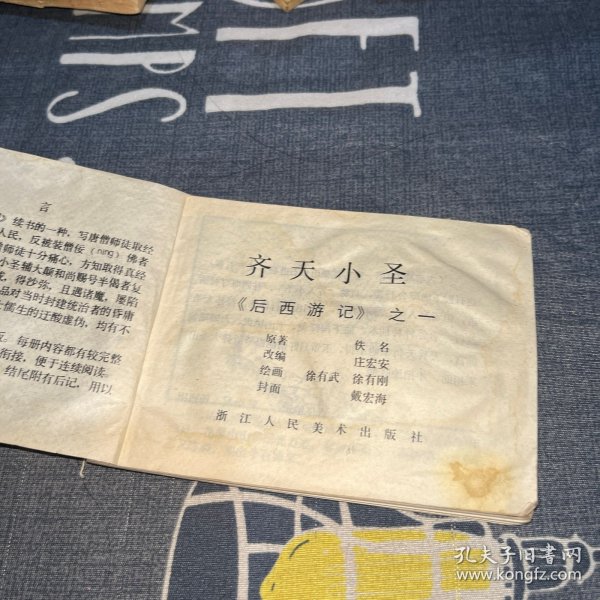 言
》续书的一种，写唐僧师徒取经
人民，反被装僧佞（nìng）佛者
师徒十分痛心，方知取得真经
小圣辅大颠和尚赐号半偈者复
得沙弥，且遇诸魔，屡陷
品对当时封建统治者的昏庸
儒生的迂酸虚伪，均有不
每册内容都有较完整
衔接，便于连续阅读。
结尾附有后记，用以
齐天小圣
《后西游记》之一
原著 佚名
改编 庄宏安
绘画 徐有武 徐有刚
封面 戴宏海
浙江人民美术出版社
孔夫子旧书网
www.kongfz.com